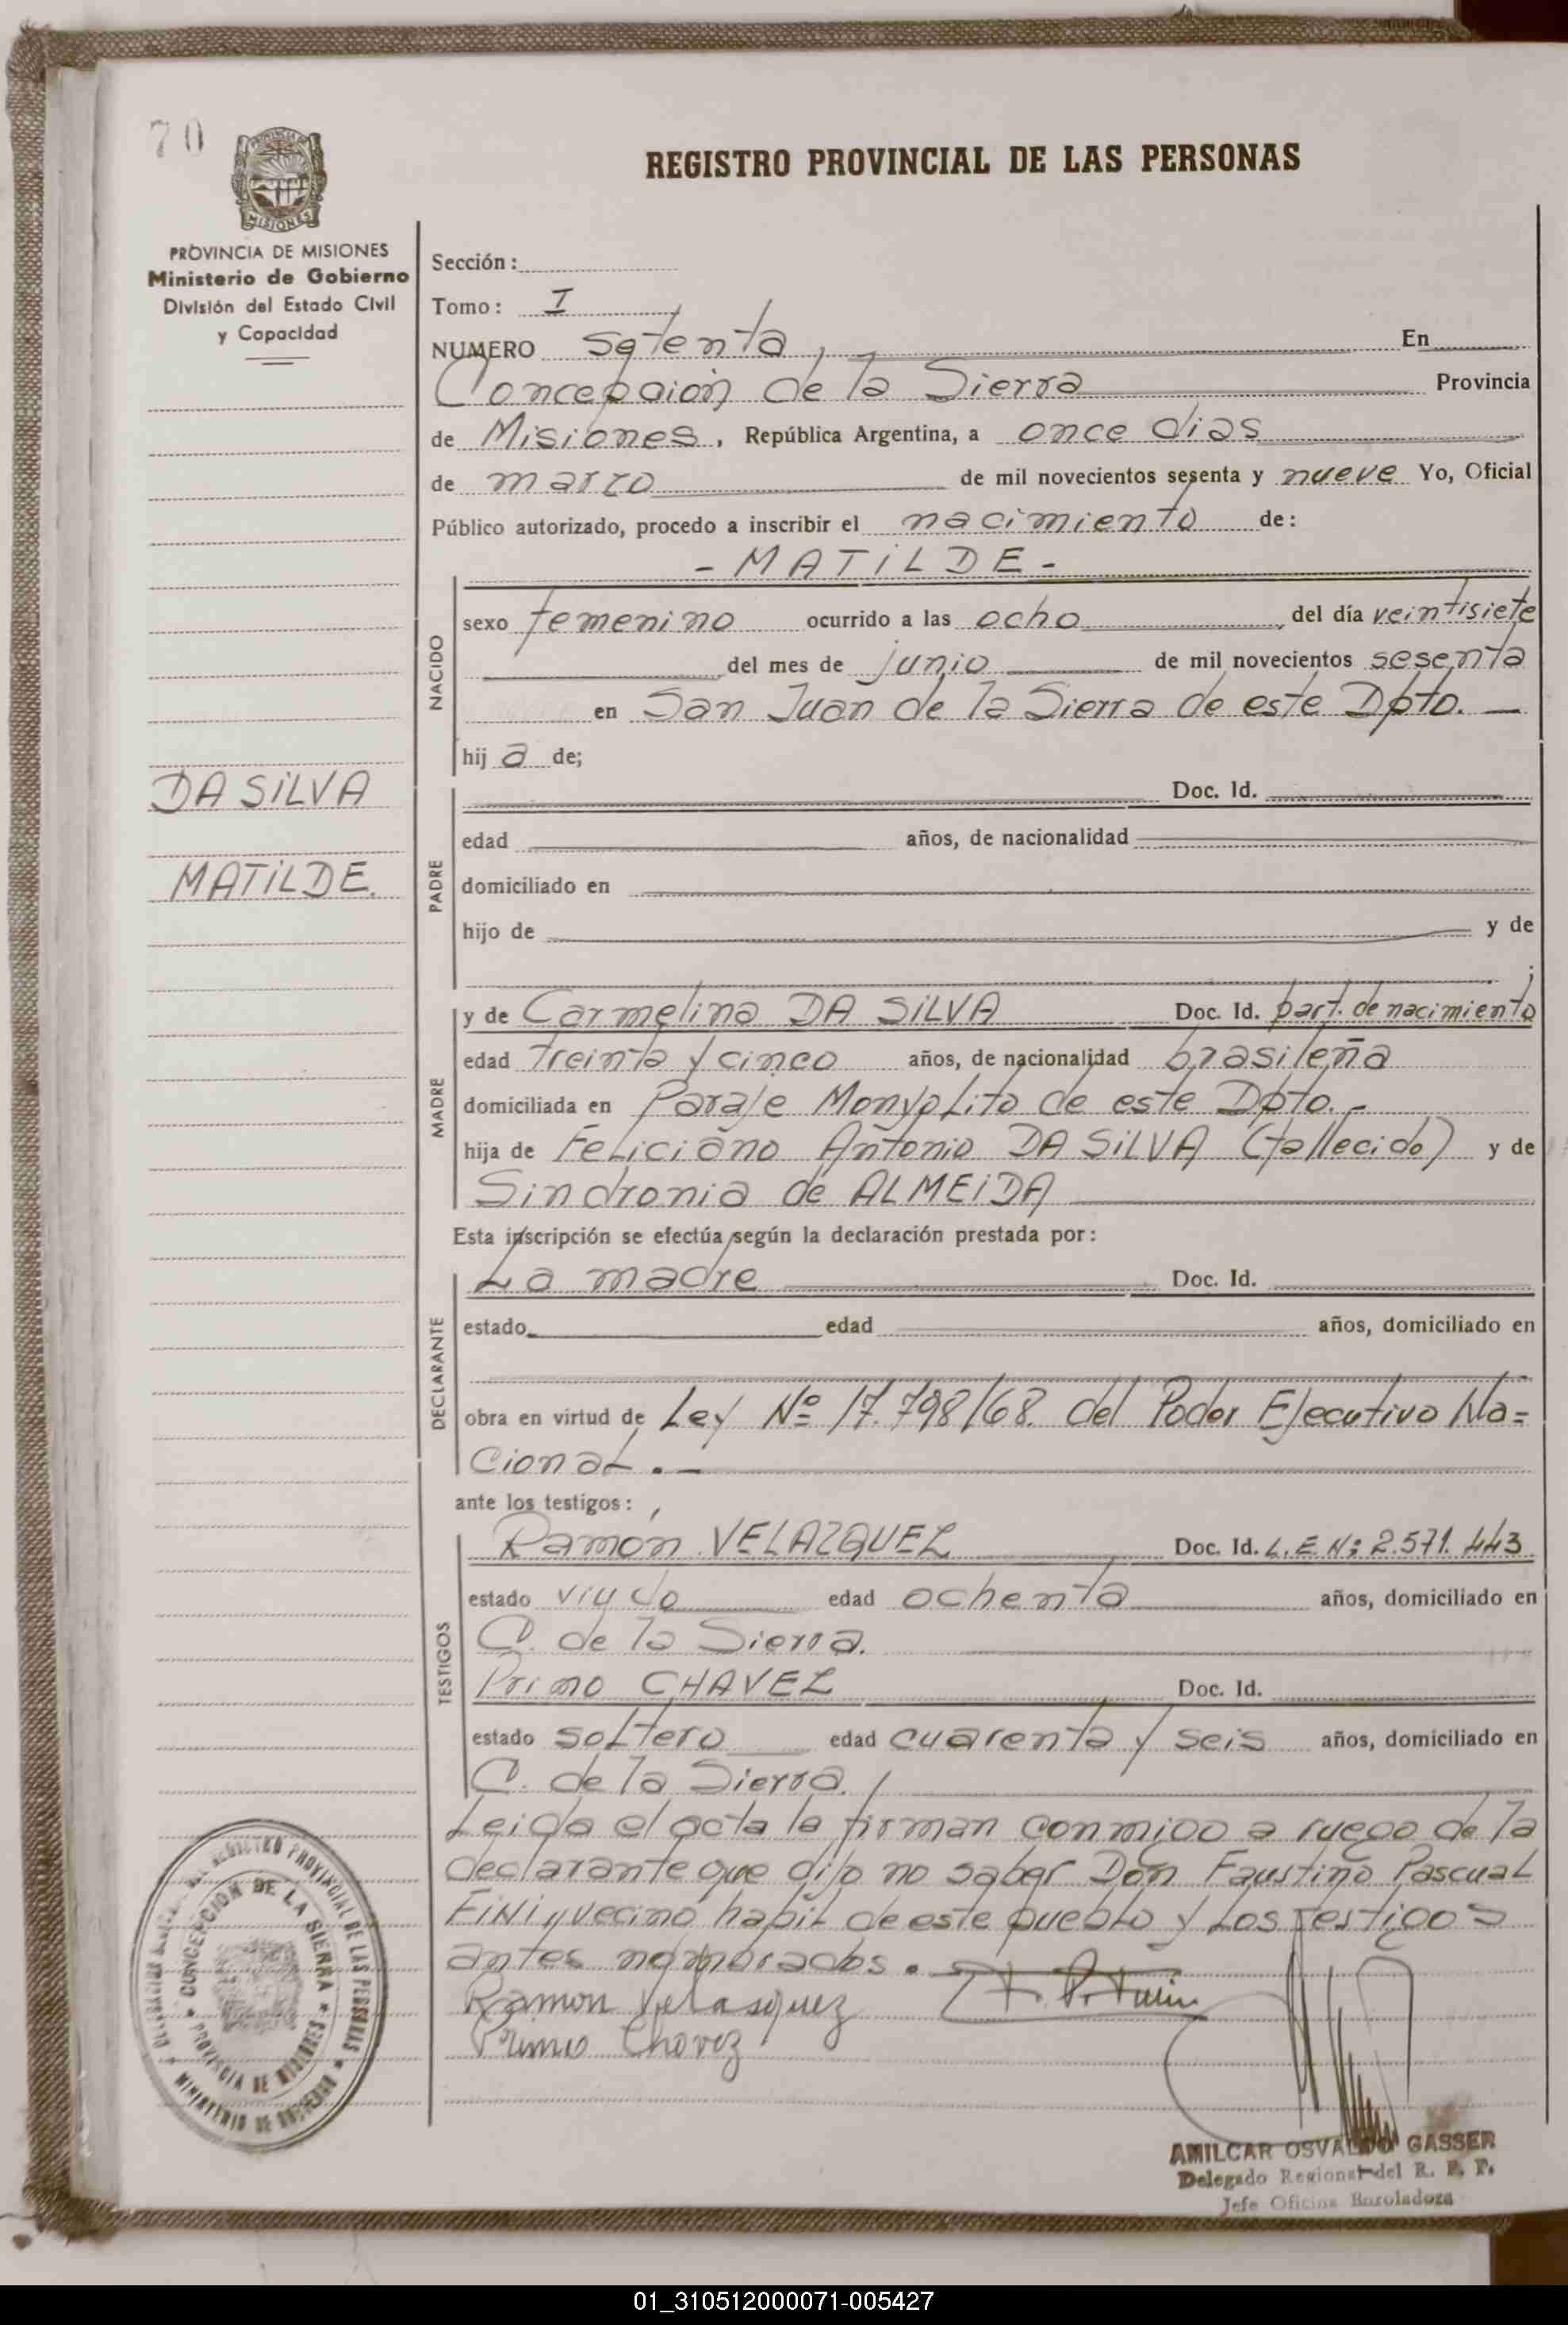 70
REGISTRO PROVINCIAL DE LAS PERSONAS
PROVINCIA DE
MISIONES
PROVINCIA DE MISIONES
Ministerio de Gobierno
División del Estado Civil
y Capacidad
Sección:
Tomo: I
NUMERO Setenta, En
Concepción de la Sierra Provincia
de Misiones, República Argentina, a once dias
de marzo de mil novecientos sesenta y nueve Yo, Oficial
Público autorizado, procedo a inscribir el nacimiento de:
- MATiLDE -
NACIDO
sexo femenino ocurrido a las ocho del día veintisiete
del mes de junio de mil novecientos sesenta
en San Juan de la Sierra de este Dpto. —
hij a de;
DA SiLVA
MATiLDE.
PADRE
Doc. Id.
edad años, de nacionalidad
domiciliado en
hijo de y de
;
MADRE
y de Carmelina DA SiLVA Doc. Id. part. de nacimiento
edad treinta y cinco años, de nacionalidad brasileña
domiciliada en Paraje Monyolito de este Dpto. -
hija de Feliciano Antonio DA SiLVA (fallecido) y de
Sindronia de ALMEiDA
Esta inscripción se efectúa según la declaración prestada por:
DECLARANTE
La madre Doc. Id.
estado edad años, domiciliado en
obra en virtud de Ley Nº 17.798/68. del Poder Ejecutivo Na=
cional.—
ante los testigos:
TESTIGOS
Ramón VELAZQUEZ Doc. Id. L.E Nº 2.571.443
estado viudo edad ochenta años, domiciliado en
C. de la Sierra.
Primo CHAVEZ Doc. Id.
estado soltero edad cuarenta y seis años, domiciliado en
C. de la Sierra.
Leida el acta la firman conmigo a ruego de la
declarante que dijo no saber Don Faustino Pascual
FiNi, vecino habil de este pueblo y los testigos
antes nombrados.
Ramon Velasquez
Primo Chavez
REGISTRO PROVINCIAL DE LAS PERSONAS
CONCEPCION DE LA SIERRA
PROVINCIA DE MISIONES
MINISTERIO DE GOBIERNO
AMILCAR OSVALDO GASSER
Delegado Regional del R. P. P.
Jefe Oficina
01_310512000071-005427